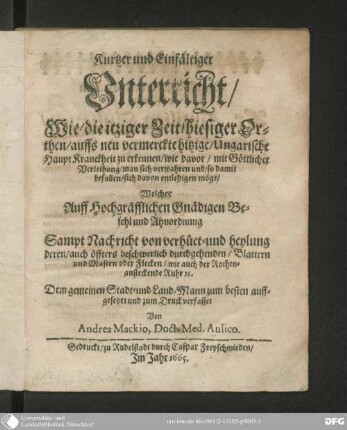 Kurtzer und Einfältiger
Vnterricht/
Wie/die itziger Zeit/hiesiger Or-
then/auffs neu vermerckte hitzige/Ungarische
Haupt Kranckheit zu erkennen/wie davor/mit Göttlicher
Verleihung/man sich verwahren und/so damit
befallen/sich davon entledigen möge/
Welcher
Auff Hochgräfflichen Gnädigen Be-
fehl und Ahnordnung
Sampt Nachricht von verhüet-und heylung
deren/auch öffters beschwerlich durchgehenden/Blattern
und Masern oder Flecken/wie auch der Rothen-
ansteckende Ruhr ꝛc.
Dem gemeinen Stadt-und Land-Mann zum besten auff-
gesetzt und zum Druck verfasset
Von
Andrea Mackio, Doct. Med. Aulico.
Gedruckt/zu Rudelstadt durch Caspar Freyschmieden/
Im Jahr 1665.
Universitäts- und
Landesbibliothek Düsseldorf
DFG